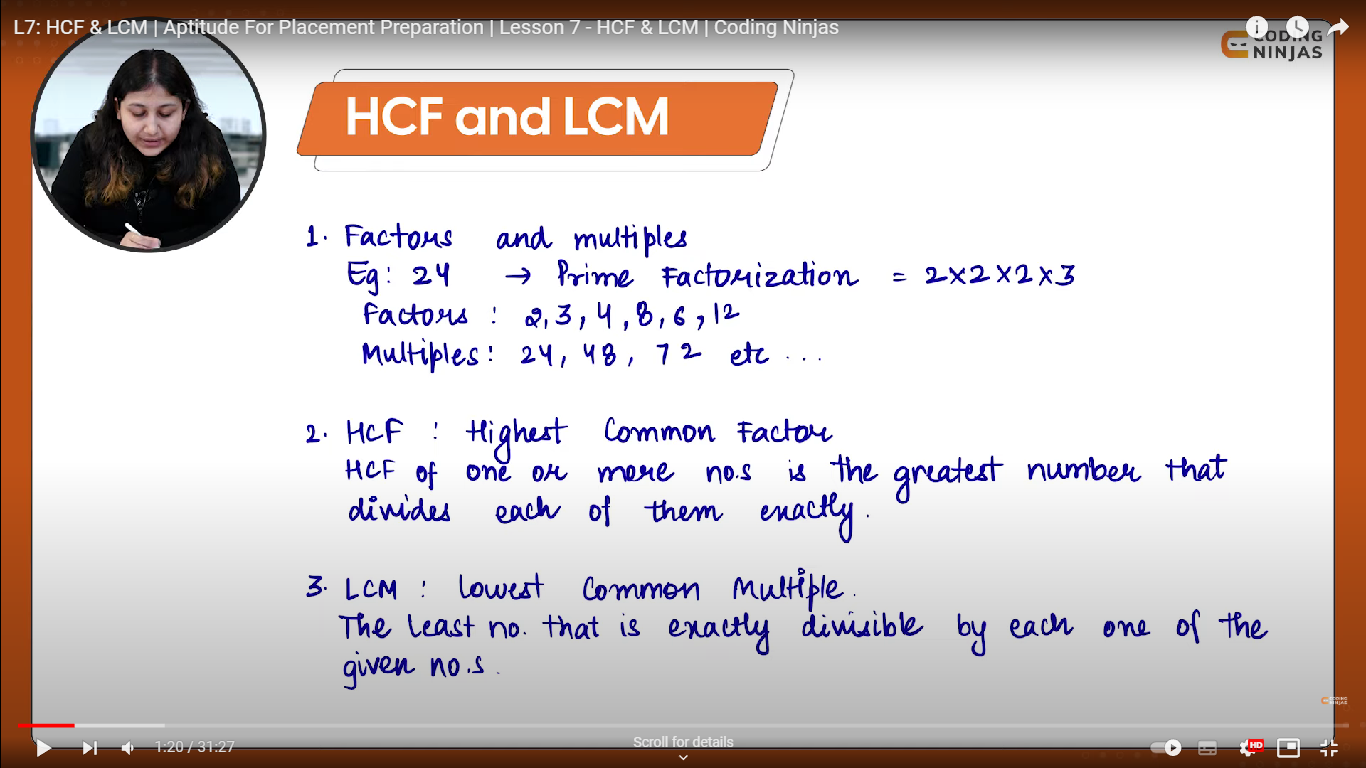 L7: HCF & LCM | Aptitude For Placement Preparation | Lesson 7 - HCF & LCM | Coding Ninjas
CODING
NINJAS
HCF and LCM
1. Factors and multiples
Eg: 24 → Prime Factorization = 2×2×2×3
Factors : 2, 3, 4, 8, 6, 12
Multiples: 24, 48, 72 etc ...
2. HCF : Highest Common Factor
HCF of one or more no.s is the greatest number that
divides each of them exactly.
3. LCM : Lowest Common Multiple.
The least no. that is exactly divisible by each one of the
given no.s.
CODING
NINJAS
1:20 / 31:27
Scroll for details
HD